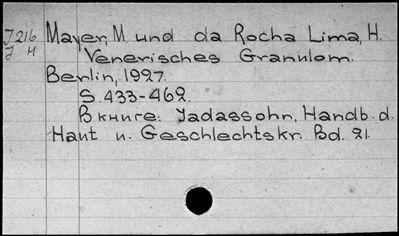 J 216 Mayer, M. und da Rocha Lima, H.
J H Venerisches Granulom.
Berlin, 1927.
S. 433-462.
В книге: Jadassohn, Handb. d.
Haut u. Geschlechtskr. Bd. 21.